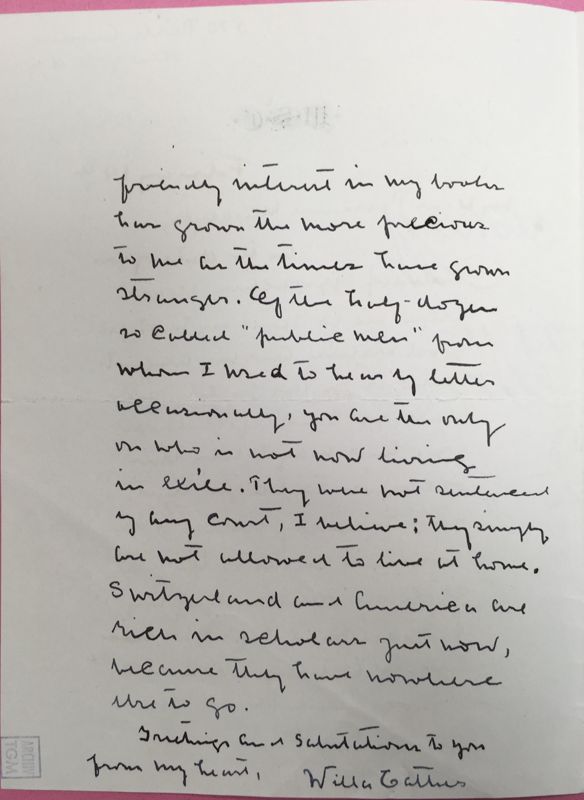 friendly interest in my books
has grown the more precious
to me as the times have grown
stranger. Of the half-dozen
so called "public men" from
whom I used to hear by letter
occasionally, you are the only
on who is not now living
in exile. They were not sentenced
by any court, I believe; they simply
are not allowed to live at home.
Switzerland and America are
rich in scholars just now,
because they have nowhere
else to go.
Greetings and salutations to you
from my heart,
Willa Cather
ARCHIV
TGM